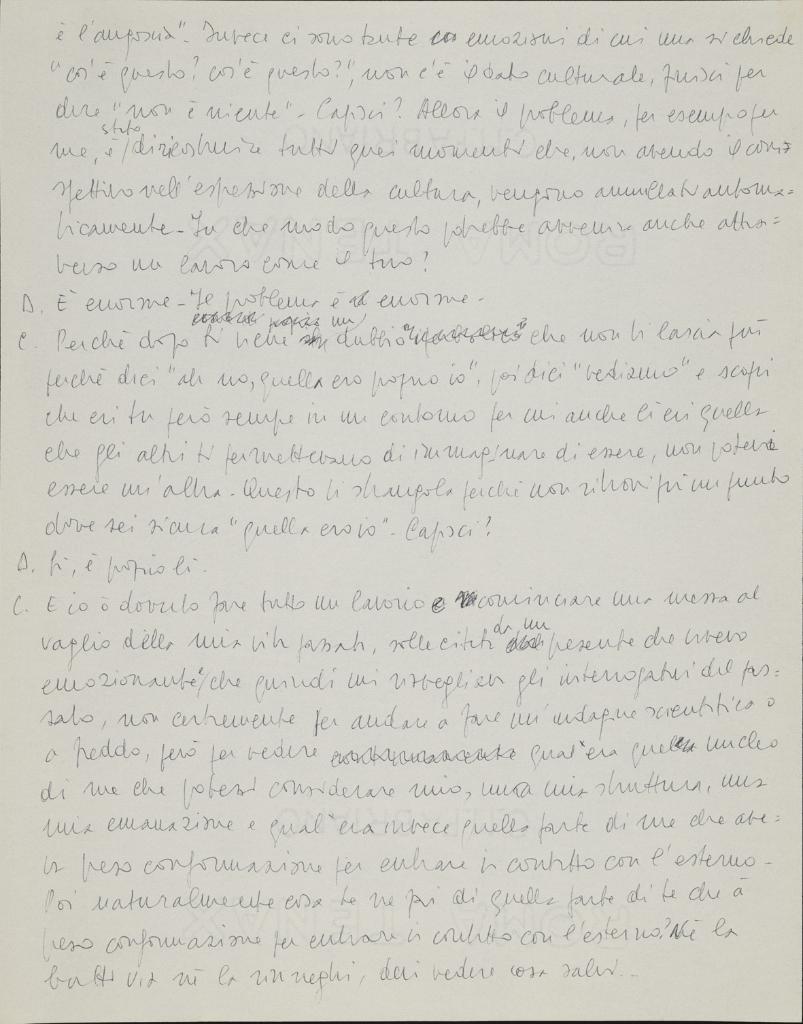 è l'angoscia". Invece ci sono tante emozioni di cui una si chiede
"cos'è questo? cos'è questo?", non c'è il dato culturale, finisci per
dire "non è niente". Capisci? Allora il problema, per esempio per
me, è stato di ricostruire tutti quei momenti che, non avendo il corri
spettivo nell'espressione della cultura, vengono annullati automa=
ticamente. In che modo questo potrebbe avvenire anche attra=
verso un lavoro come il tuo?
D. È enorme. Il problema è enorme.
C. Perché dopo ti viene un dubbio che non ti lascia più
perché dici "ah no, quella ero proprio io", poi dici "vediamo" e scopri
che eri tu però sempre in un contorno per cui anche lì eri quella
che gli altri ti permettevano di immaginare di essere, non potevi
essere un'altra. Questo ti strangola perché non ritrovi più un punto
dove sei sicura "quella ero io". Capisci?
D. Sì, è proprio lì.
C. E io ò dovuto fare tutto un lavorio e ricominciare una messa al
vaglio della mia vita passata, sollecitata da un presente che
emozionante, che quindi mi risvegliava gli interrogativi del pas=
sato, non certamente per andare a fare un'indagine scientifica o
a freddo, però per vedere qual'era quel nucleo
di me che potessi considerare mio, una mia struttura, una
mia emanazione e qual'era invece quella parte di me che ave=
va preso conformazione per entrare in contatto con l'esterno.
Poi naturalmente cosa te ne fai di quella parte di te che à
preso conformazione per entrare in contatto con l'esterno? Né la
butti via né la rinneghi, devi vedere cosa salvi...